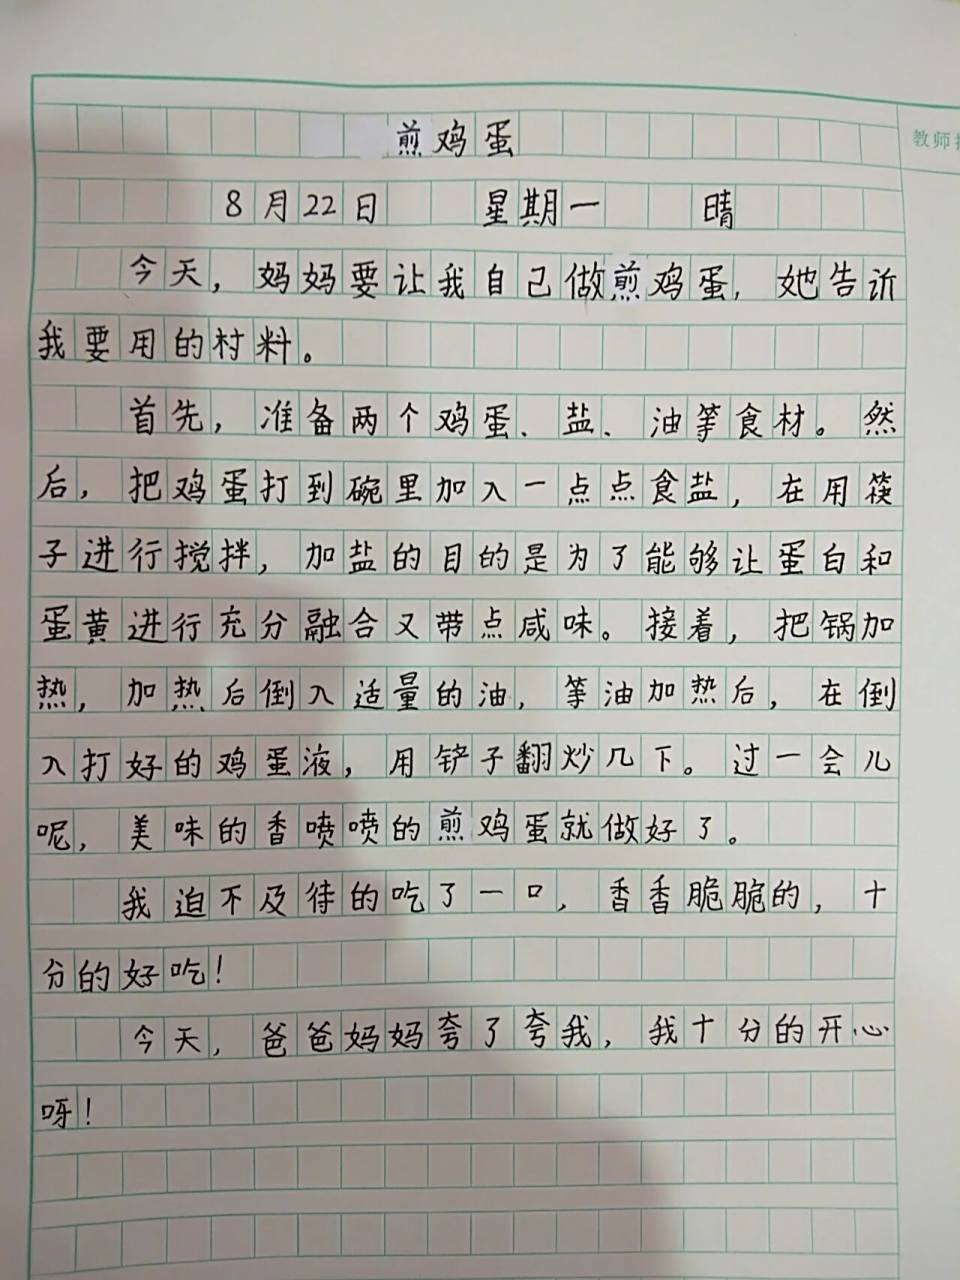 煎鸡蛋
8月22日 星期一 晴
今天，妈妈要让我自己做煎鸡蛋，她告诉
我要用的村料。
首先，准备两个鸡蛋、盐、油等食材。然
后，把鸡蛋打到碗里加入一点点食盐，在用筷
子进行搅拌，加盐的目的是为了能够让蛋白和
蛋黄进行充分融合又带点咸味。接着，把锅加
热，加热后倒入适量的油，等油加热后，在倒
入打好的鸡蛋液，用铲子翻炒几下。过一会儿
呢，美味的香喷喷的煎鸡蛋就做好了。
我迫不及待的吃了一口，香香脆脆的，十
分的好吃！
今天，爸爸妈妈夸了夸我，我十分的开心
呀！
教师